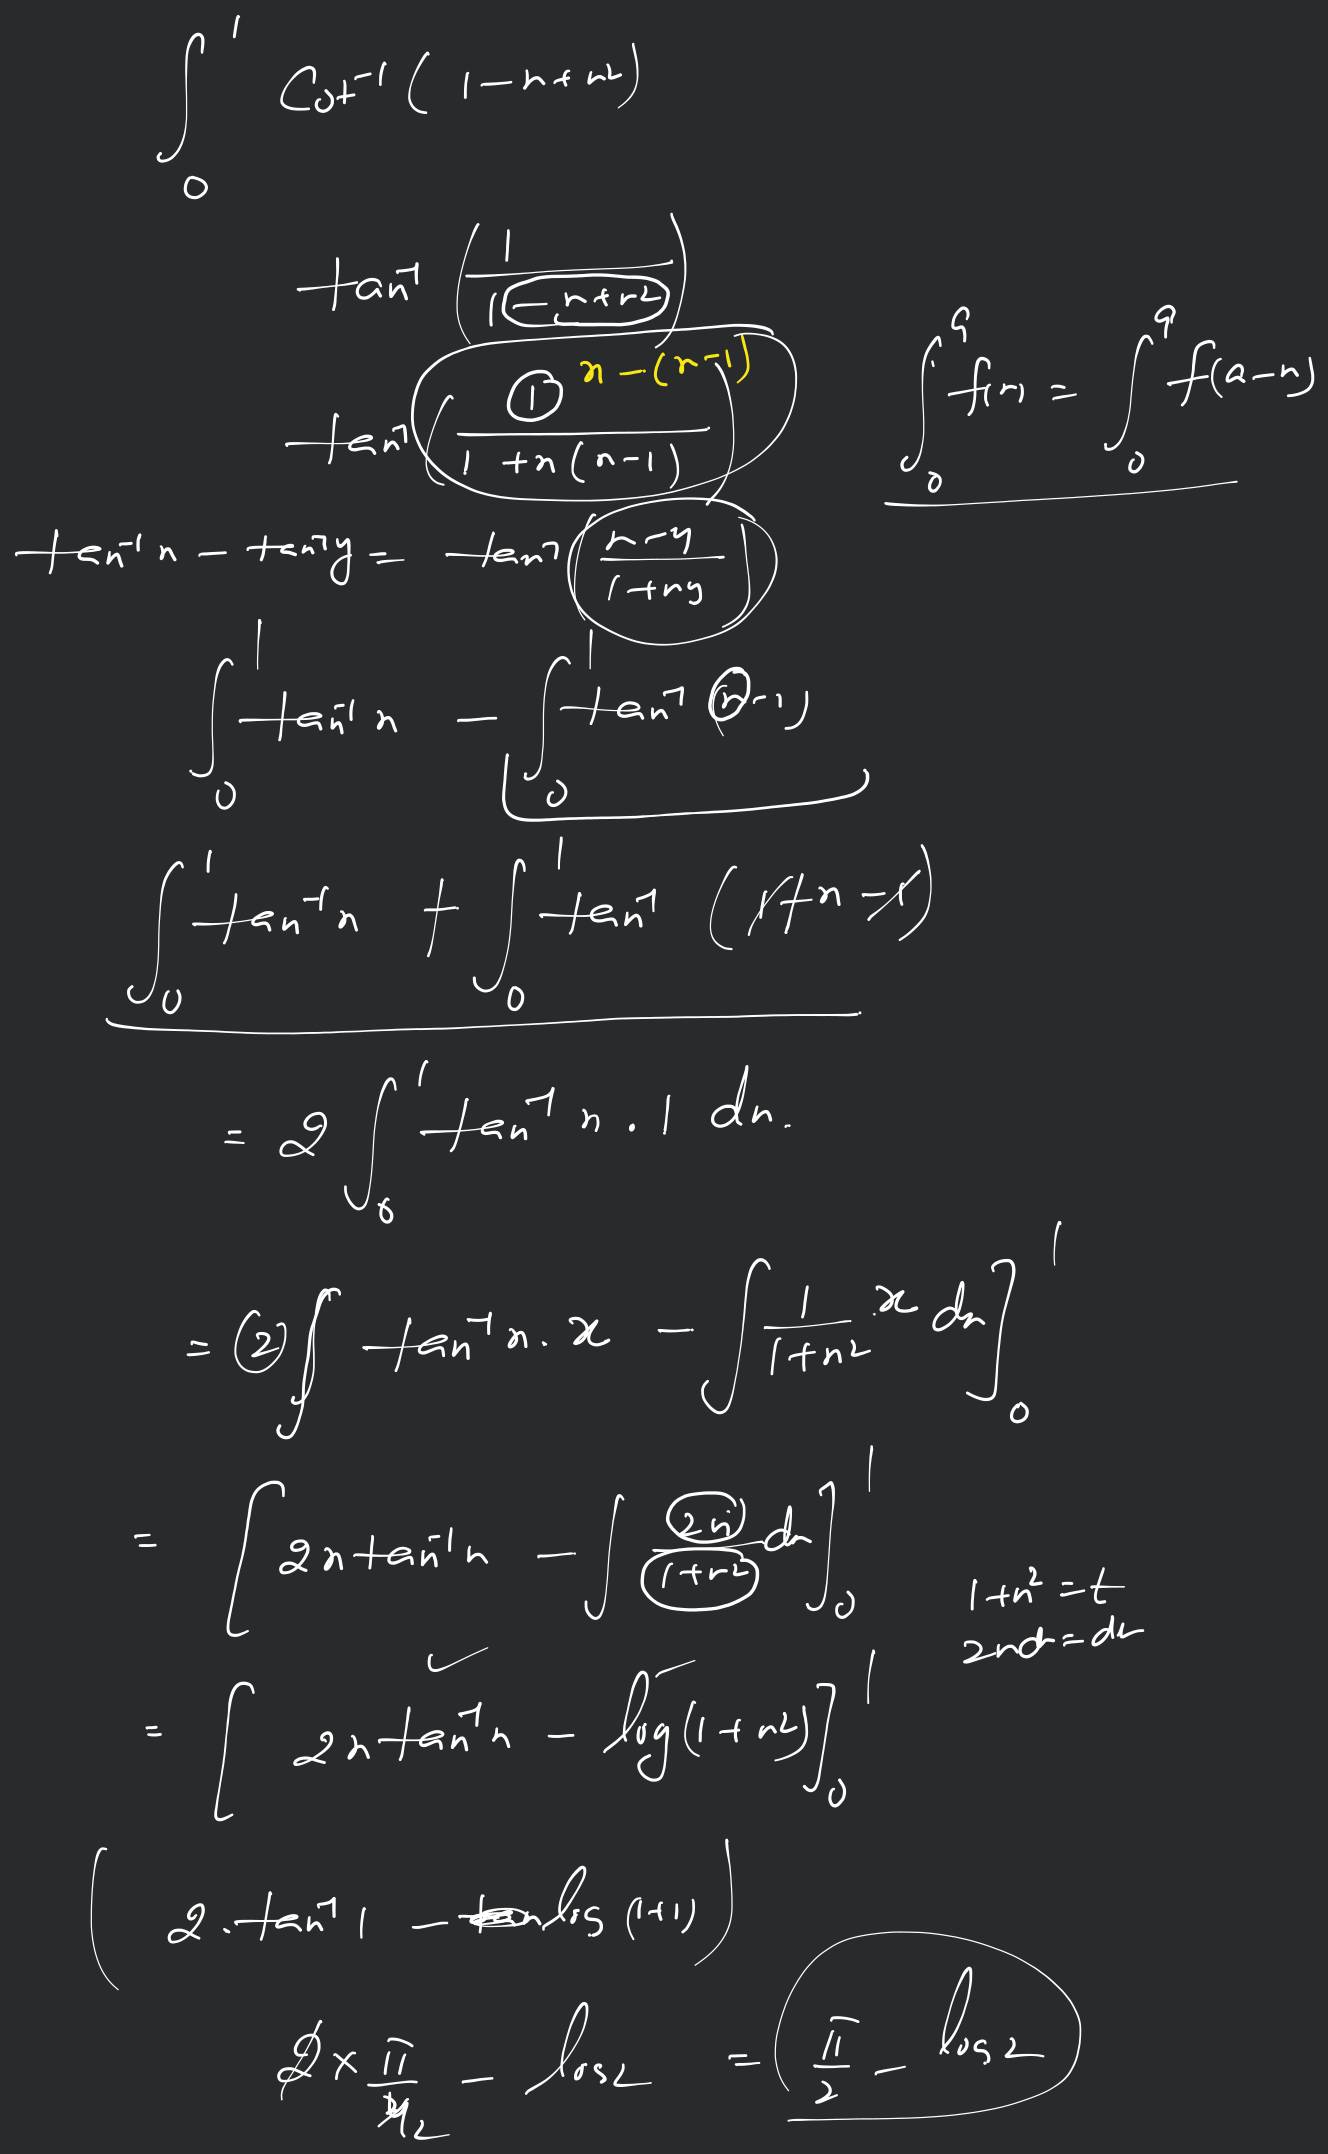 ∫₀¹ Cot⁻¹(1−x+x²)
tan⁻¹(1/(1−x+x²))
x−(x−1)
tan⁻¹(1/(1+x(x−1)))
∫₀ᵃ f(x) = ∫₀ᵃ f(a−x)
tan⁻¹x − tan⁻¹y = tan⁻¹((x−y)/(1+xy))
∫₀¹ tan⁻¹x − ∫₀¹ tan⁻¹(x−1)
∫₀¹ tan⁻¹x + ∫₀¹ tan⁻¹(1+x−1)
= 2∫₀¹ tan⁻¹x . 1 dx.
= 2∫ tan⁻¹x . x − ∫ 1/(1+x²) . x dx]₀¹
= [2x tan⁻¹x − ∫ 2x/(1+x²) dx]₀¹
1+x² = t
2xdx = dt
= [2x tan⁻¹x − log(1+x²)]₀¹
(2.tan⁻¹1 − log(1+1))
2 × π/4 2 − log2 = π/2 − log2